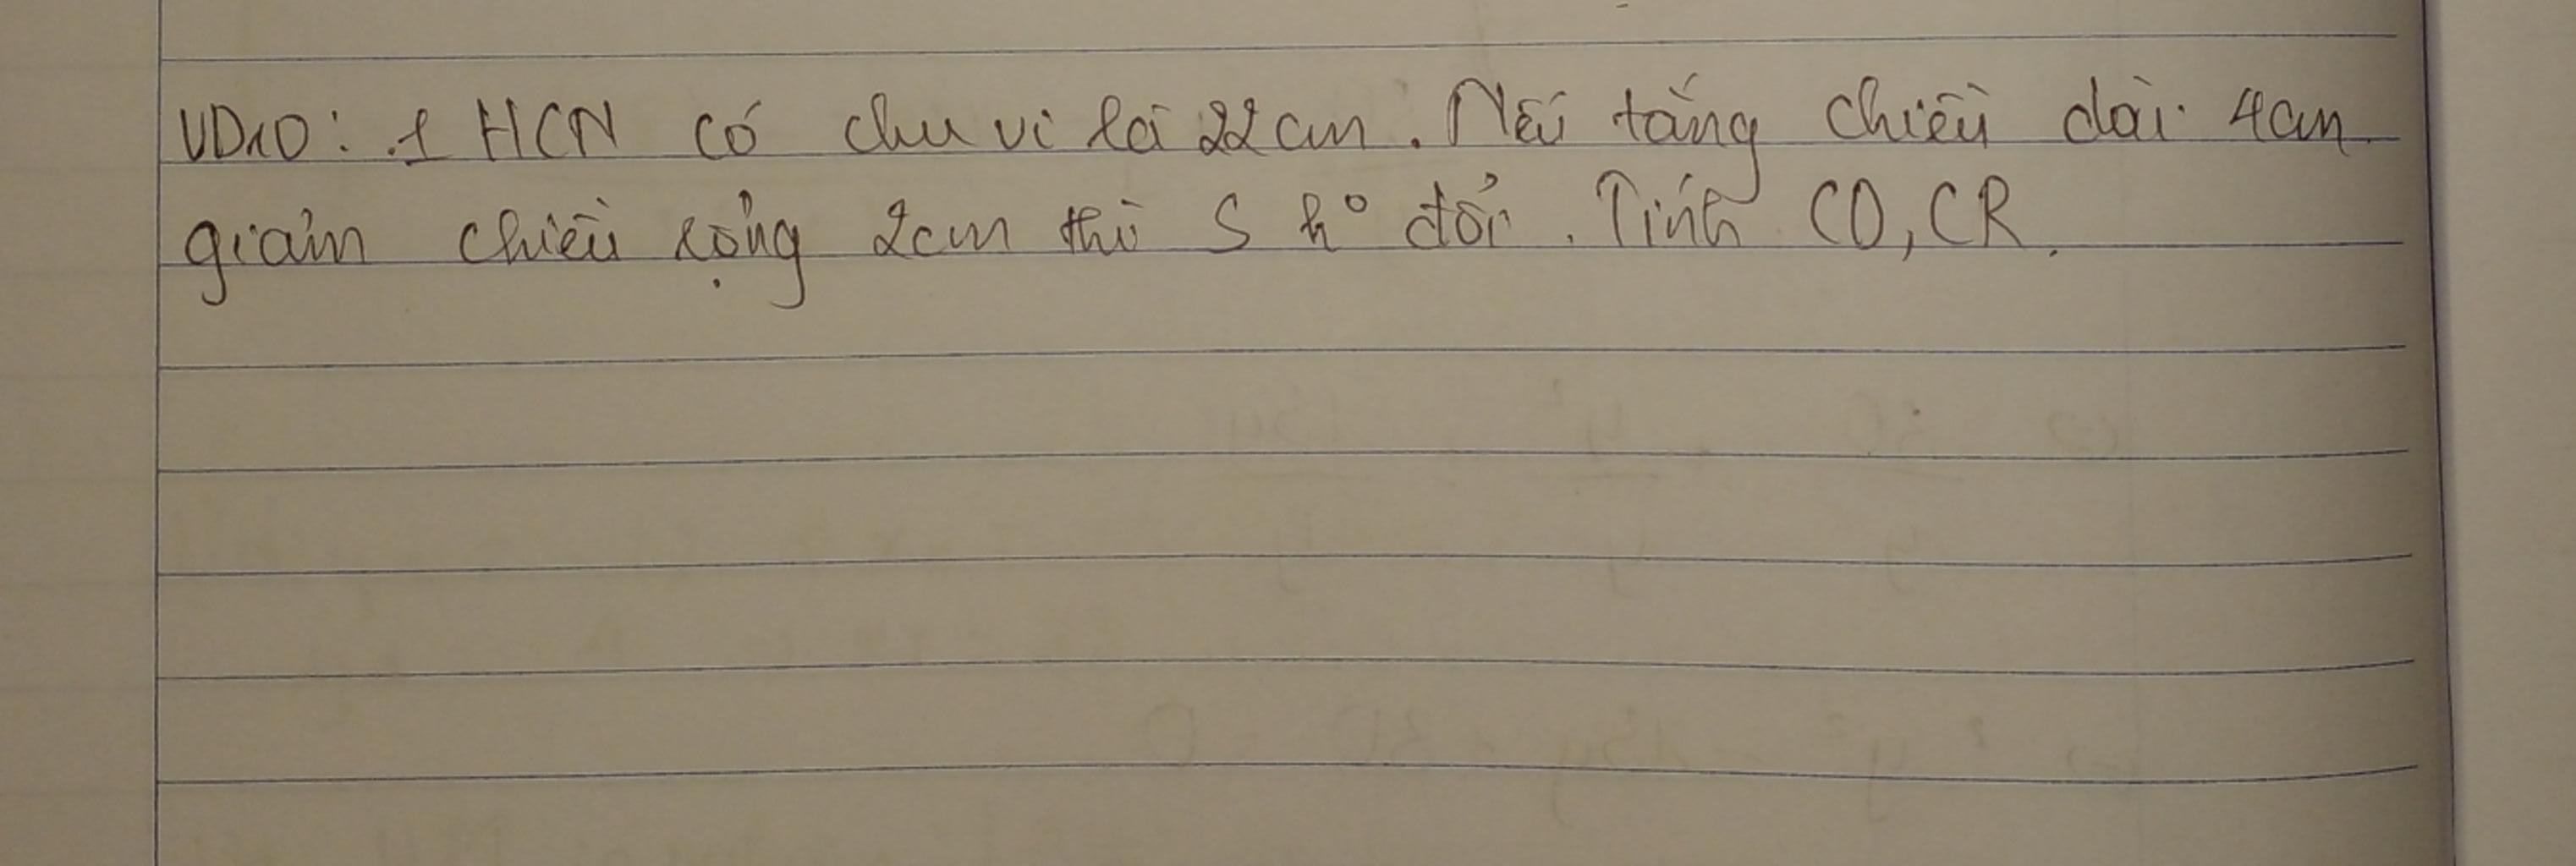 VD10: 1 HCN có chu vi là 22cm. Nếu tăng chiều dài 4cm
giảm chiều rộng 2cm thì S ko đổi. Tính CD, CR.